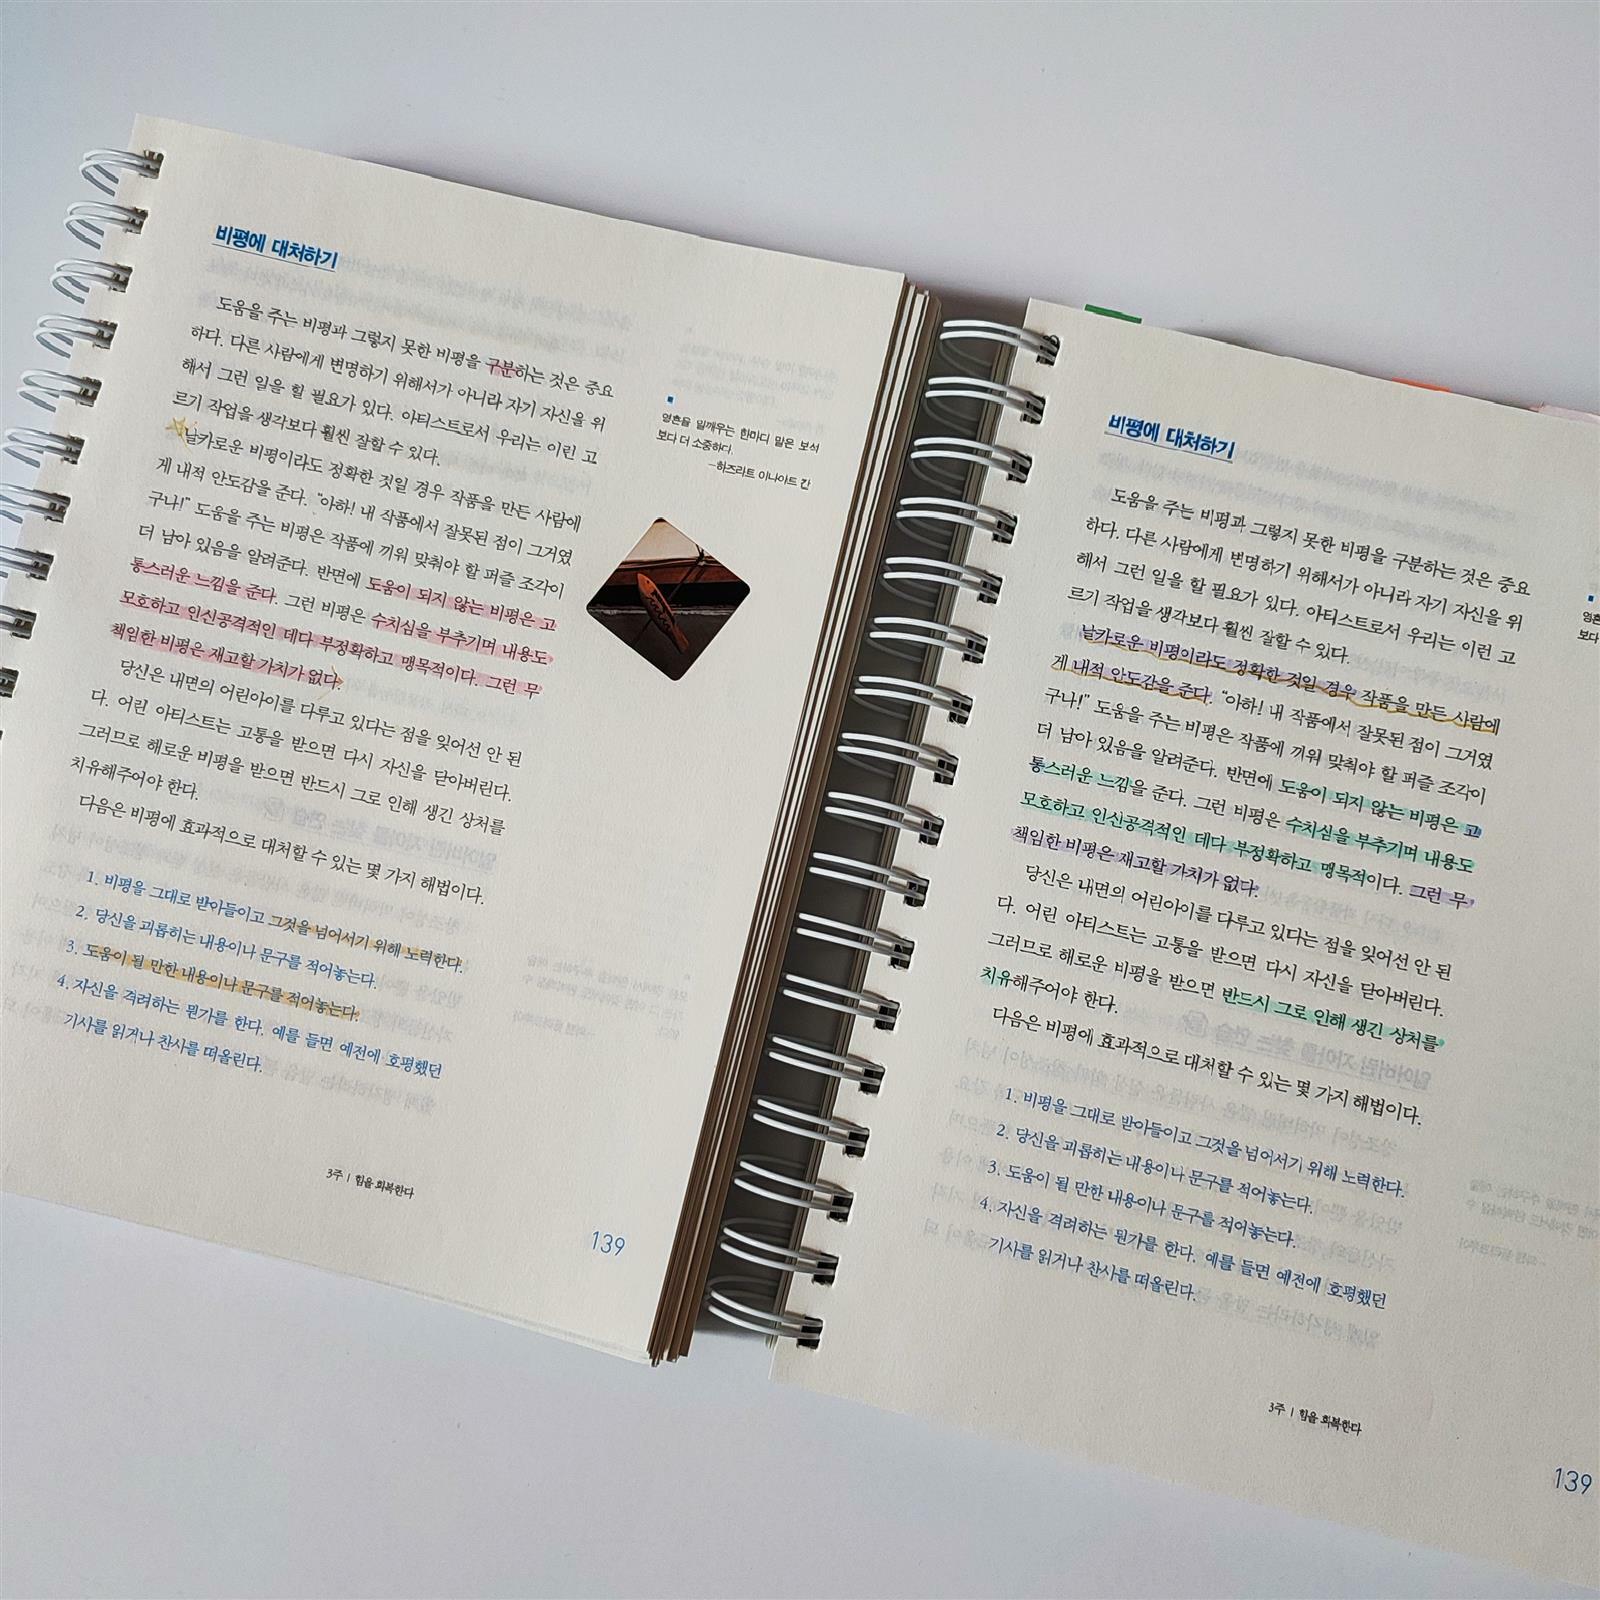 비평에 대처하기
도움을 주는 비평과 그렇지 못한 비평을 구분하는 것은 중요
하다. 다른 사람에게 변명하기 위해서가 아니라 자기 자신을 위
해서 그런 일을 할 필요가 있다. 아티스트로서 우리는 이런 고
르기 작업을 생각보다 훨씬 잘할 수 있다.
날카로운 비평이라도 정확한 것일 경우 작품을 만든 사람에
게 내적 안도감을 준다. “아하! 내 작품에서 잘못된 점이 그거였
구나!” 도움을 주는 비평은 작품에 끼워 맞춰야 할 퍼즐 조각이
더 남아 있음을 알려준다. 반면에 도움이 되지 않는 비평은 고
통스러운 느낌을 준다. 그런 비평은 수치심을 부추기며 내용도
모호하고 인신공격적인 데다 부정확하고 맹목적이다. 그런 무
책임한 비평은 재고할 가치가 없다.
당신은 내면의 어린아이를 다루고 있다는 점을 잊어선 안 된
다. 어린 아티스트는 고통을 받으면 다시 자신을 닫아버린다.
그러므로 해로운 비평을 받으면 반드시 그로 인해 생긴 상처를
치유해주어야 한다.
다음은 비평에 효과적으로 대처할 수 있는 몇 가지 해법이다.
1. 비평을 그대로 받아들이고 그것을 넘어서기 위해 노력한다.
2. 당신을 괴롭히는 내용이나 문구를 적어놓는다.
3. 도움이 될 만한 내용이나 문구를 적어놓는다.
4. 자신을 격려하는 뭔가를 한다. 예를 들면 예전에 호평했던
기사를 읽거나 찬사를 떠올린다.
영혼을 일깨우는 한마디 말은 보석
보다 더 소중하다.
–하즈라트 이나야트 칸
3주 | 힘을 회복한다
139
비평에 대처하기
도움을 주는 비평과 그렇지 못한 비평을 구분하는 것은 중요
하다. 다른 사람에게 변명하기 위해서가 아니라 자기 자신을 위
해서 그런 일을 할 필요가 있다. 아티스트로서 우리는 이런 고
르기 작업을 생각보다 훨씬 잘할 수 있다.
날카로운 비평이라도 정확한 것일 경우 작품을 만든 사람에
게 내적 안도감을 준다. “아하! 내 작품에서 잘못된 점이 그거였
구나!” 도움을 주는 비평은 작품에 끼워 맞춰야 할 퍼즐 조각이
더 남아 있음을 알려준다. 반면에 도움이 되지 않는 비평은 고
통스러운 느낌을 준다. 그런 비평은 수치심을 부추기며 내용도
모호하고 인신공격적인 데다 부정확하고 맹목적이다. 그런 무
책임한 비평은 재고할 가치가 없다.
당신은 내면의 어린아이를 다루고 있다는 점을 잊어선 안 된
다. 어린 아티스트는 고통을 받으면 다시 자신을 닫아버린다.
그러므로 해로운 비평을 받으면 반드시 그로 인해 생긴 상처를
치유해주어야 한다.
다음은 비평에 효과적으로 대처할 수 있는 몇 가지 해법이다.
1. 비평을 그대로 받아들이고 그것을 넘어서기 위해 노력한다.
2. 당신을 괴롭히는 내용이나 문구를 적어놓는다.
3. 도움이 될 만한 내용이나 문구를 적어놓는다.
4. 자신을 격려하는 뭔가를 한다. 예를 들면 예전에 호평했던
기사를 읽거나 찬사를 떠올린다.
영혼
보다
3주 | 힘을 회복한다
139